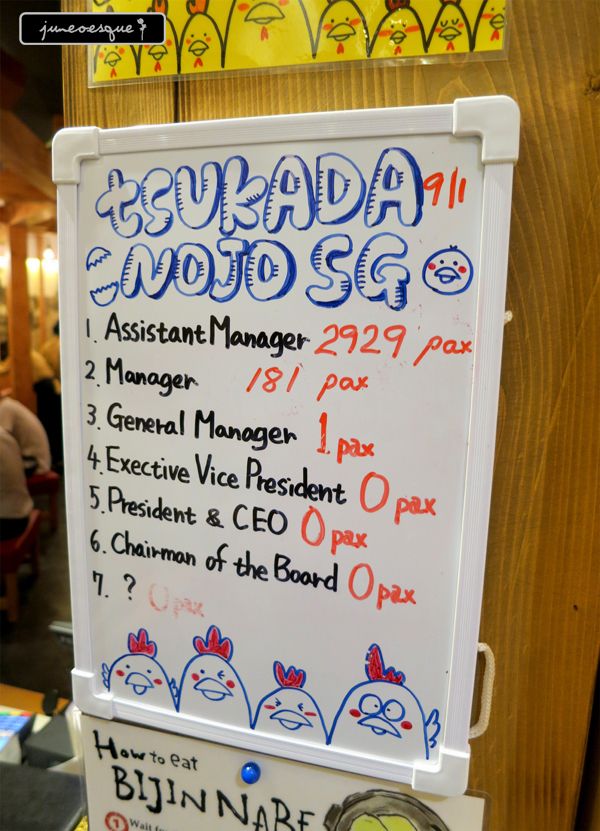 juneoesque
tsukADA 9/1
NOJO SG
1. Assistant Manager 2929 pax
2. Manager 181 pax
3. General Manager 1 pax
4. Exective Vice President 0 pax
5. President & CEO 0 pax
6. Chairman of the Board 0 pax
7. ? 0 pax
How to eat
BIJIN NABE
1 Wait